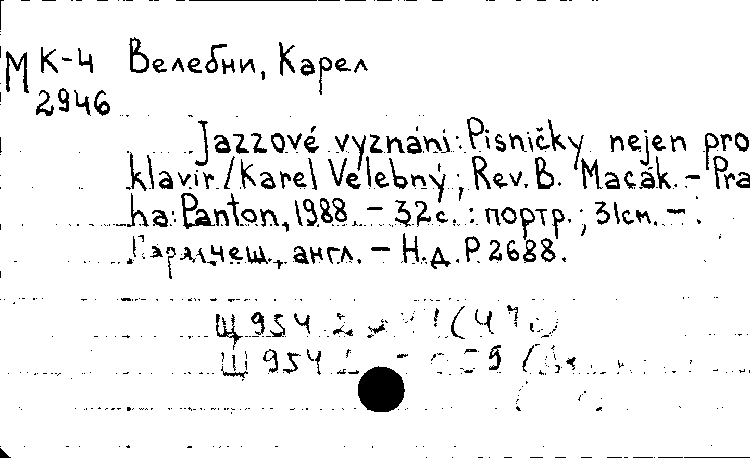 М К-4 Велебни, Карел
2946
Jazzové vyznání: Pisničky nejen pro
klavír / Karel Velebný; Rev. B. Macák. - Pra
ha: Panton, 1988. - 32 с. : портр. ; 31см. - .
чеш., англ. - Н.д. P 2688.
Щ 954.2
Щ 954